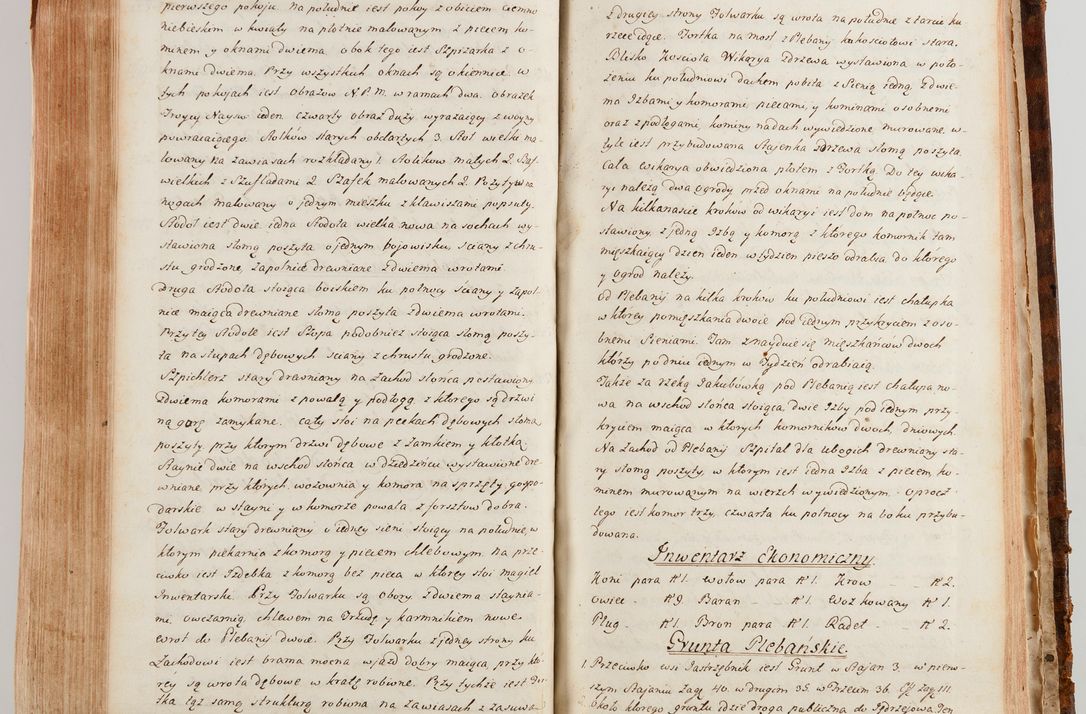 pierwszego pokoju na południe iest pokoy z obiciem ciemno
niebieskim w kwiaty na płotnie malowanym z piecem ko-
minem y oknami dwiema obok tego iest Szpizarka z o-
knami dwiema. Przy wszystkich oknach są okiennice. w
tych pokojach iest obrazow N.P.M. w ramach dwa. obrazek
Troycy Nayśw: ieden. czwarty obraz duży wyrazaiący z woyny
powracaiącego. Stołkow starych obdartych 3. Stoł wielki ma-
lowany na zawiasach rozkładany 1. Stolikow małych 2. Szaf
wielkich z Szufladami 2. Szafek malowanych 2. Pozytyw na
nogach malowany o jednym mieszku z klawiszami popsuty.
Stodoł iest dwie. iedna Stodoła wielka nowa na sochach wy-
stawiona słomą poszyta o jednym bojowisku, ściany z chru-
stu grodzone, zapolnice drewniane z dwiema wrotami.
Druga Stodoła stoiąca boiskiem ku połnocy ściany y zapol-
nice maiąca drewniane słomą poszyta z dwiema wrotami.
Przy tey Stodole iest Szopa podobniez stoiąca słomą poszy-
ta na słupach dębowych ściany z chrustu grodzone.
Szpichlerz stary drewniany na zachod słońca postawiony
z dwiema komorami z powałą y podłogą, z ktorego są drzwi
na gorę zamykane. cały stoi na pękach dębowych słomą
poszyty, przy ktorym drzwi dębowe z zamkiem y kłotką.
Staynie dwie na wschod słońca w dziedzińcu wystawione dre-
wniane, przy ktorych wozownia y komora na sprzęty gospo-
darskie, w stayni y w komorze powała z forsztow dobra.
Folwark stary drewniany o iedney sieni stoiący na południe, w
ktorym piekarnia z komorą y piecem chlebowym. na prze-
ciwko iest Izdebka z komorą bez pieca w ktorey stoi magiel
Inwentarski. Przy Folwarku są obory z dwiema staynia-
mi, owczarnią, chlewem na Trzodę y karmnikiem nowe.
wrot do Plebanij dwoie. Przy Folwarku z jedney strony ku
Zachodowi iest brama mocna wjazd dobry maiąca, przy kto-
rey są wrota dębowe w kratę robione. Przy tychze iest Fur-
tka tąż samą strukturą robiona na zawiasach z zasuwa-
z drugiey strony Folwarku są wrota na południe z tarcic ku
rzece idące. Fortka na most z Plebany ku kościołowi stara.
Blisko Kościoła Wikarya z drzewa wystawiona w poło-
żeniu ku południowi dachem pobita z Sienią iedną, z dwie-
ma Izbami, y komorami piecami, y kominami osobnemi
oraz z podłogami, kominy nadach wywiedzione murowane. w
tyle iest przybudowana Stajenka z drzewa słomą poszyta.
Cała wikarya obwiedziona płotem z Fortką. Do tey wika-
ryi należą dwa ogrody przed oknami na południe będące.
Na kilkanaście krokow od wikaryi iest dom na połnoc po-
stawiony. z jedną Izbą y komorą z ktorego komornik tam
mieszkaiący dzien ieden w tydzien pieszo odrabia. do ktorego
y ogrod należy.
Od Plebanij na kilka krokow ku południowi iest chałupka
w ktorey pomięszkania dwoie pod iednym przykryciem z oso-
bnemi Sieniami. Tam znayduie się mięszkańcow dwoch
ktorzy po dniu iednym w Tydzień odrabiaią.
Także za rzeką Jakubówką pod Plebanią iest chałupa no-
wa na wschod słońca stoiąca, dwie Izby pod iednym przy-
kryciem maiąca w ktorych komornikow dwoch, dniowych.
Na zachod od Plebanij Szpital dla ubogich drewniany sta-
ry słomą poszyty, w ktorym iest iedna Izba z piecem, ko-
minem murowanym na wierzch wywiedzionym. oprocz
tego iest komor trzy, czwarta ku połnocy na boku przybu-
dowana.
Inwentarz Ekonomiczny.
Koni para N 1. wołow para N 1. Krow - - N 2.
owiec - N 9. Baran - - N 1. Woz kowany N 1.
Pług - N 1. Bron para N 1. Radeł - - N 2.
Grunta Plebanskie.
1. Przeciwko wsi Jastrzębnik iest Grunt w Stajan 3. w pierw-
szym Stajaniu zag: 40. w drugim 35. w Trzecim 36. Eff. zag: 111.
około ktorego gruntu idzie droga publiczna do Jędrzejowa. Ten